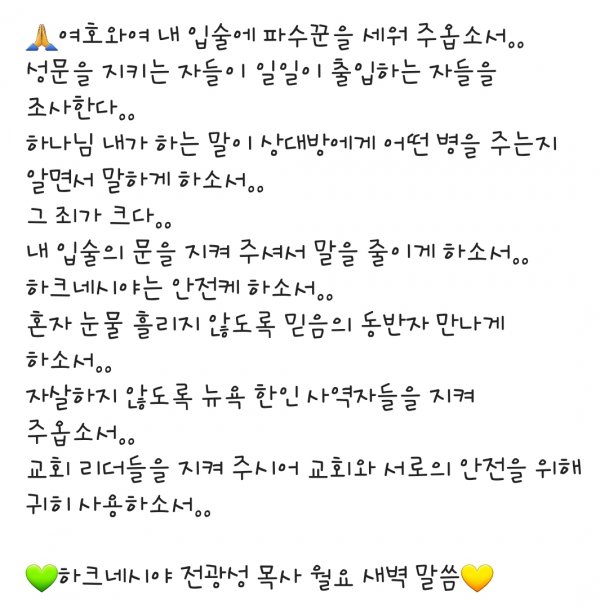 🙏여호와여 내 입술에 파수꾼을 세워 주옵소서。。
성문을 지키는 자들이 일일이 출입하는 자들을
조사한다。。
하나님 내가 하는 말이 상대방에게 어떤 병을 주는지
알면서 말하게 하소서。。
그 죄가 크다。。
내 입술의 문을 지켜 주셔서 말을 줄이게 하소서。。
하크네시야는 안전케 하소서。。
혼자 눈물 흘리지 않도록 믿음의 동반자 만나게
하소서。。
자살하지 않도록 뉴욕 한인 사역자들을 지켜
주옵소서。。
교회 리더들을 지켜 주시어 교회와 서로의 안전을 위해
귀히 사용하소서。。
💚하크네시야 전광성 목사 월요 새벽 말씀💛